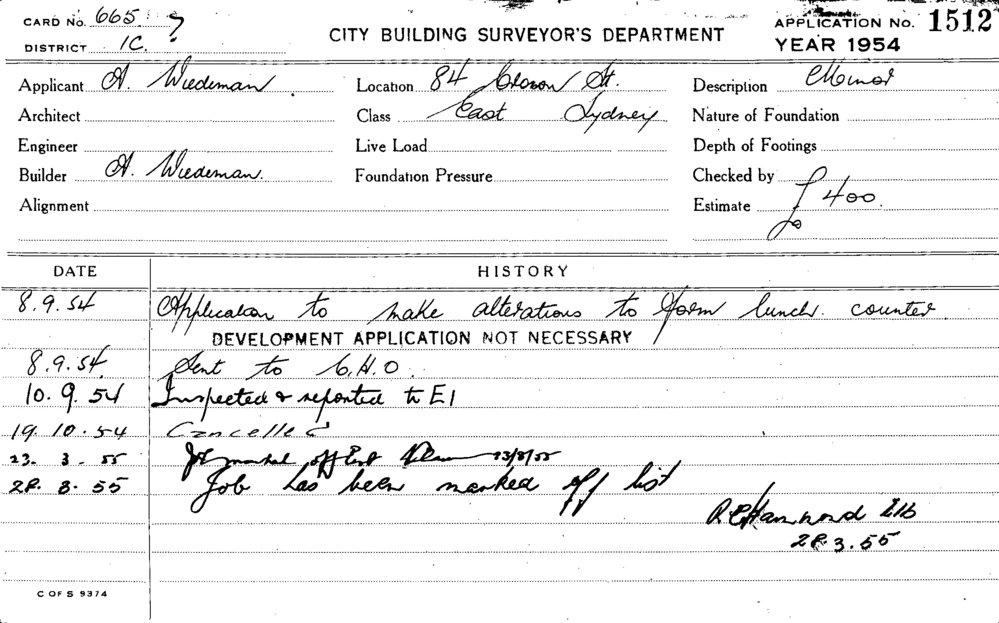 CARD No. 665 ?
DISTRICT 1C.
CITY BUILDING SURVEYOR'S DEPARTMENT
APPLICATION No. 1512
YEAR 1954
Applicant A. Wiedeman
Location 84 Crown St.
Description Minor
Architect
Class East Sydney
Nature of Foundation
Engineer
Live Load
Depth of Footings
Builder A. Wiedeman.
Foundation Pressure
Checked by
Alignment
Estimate £400.
DATE HISTORY
8.9.54 Application to make alterations to form lunch counter
DEVELOPMENT APPLICATION NOT NECESSARY
8.9.54. Sent to C.H.O.
10.9.54 Inspected & reported to E1
19.10.54 Cancelled
23.3.55 Job marked off List 23/3/55
28.3.55 Job has been marked off list
R Hammond E1b
28.3.55
C OF S 9374